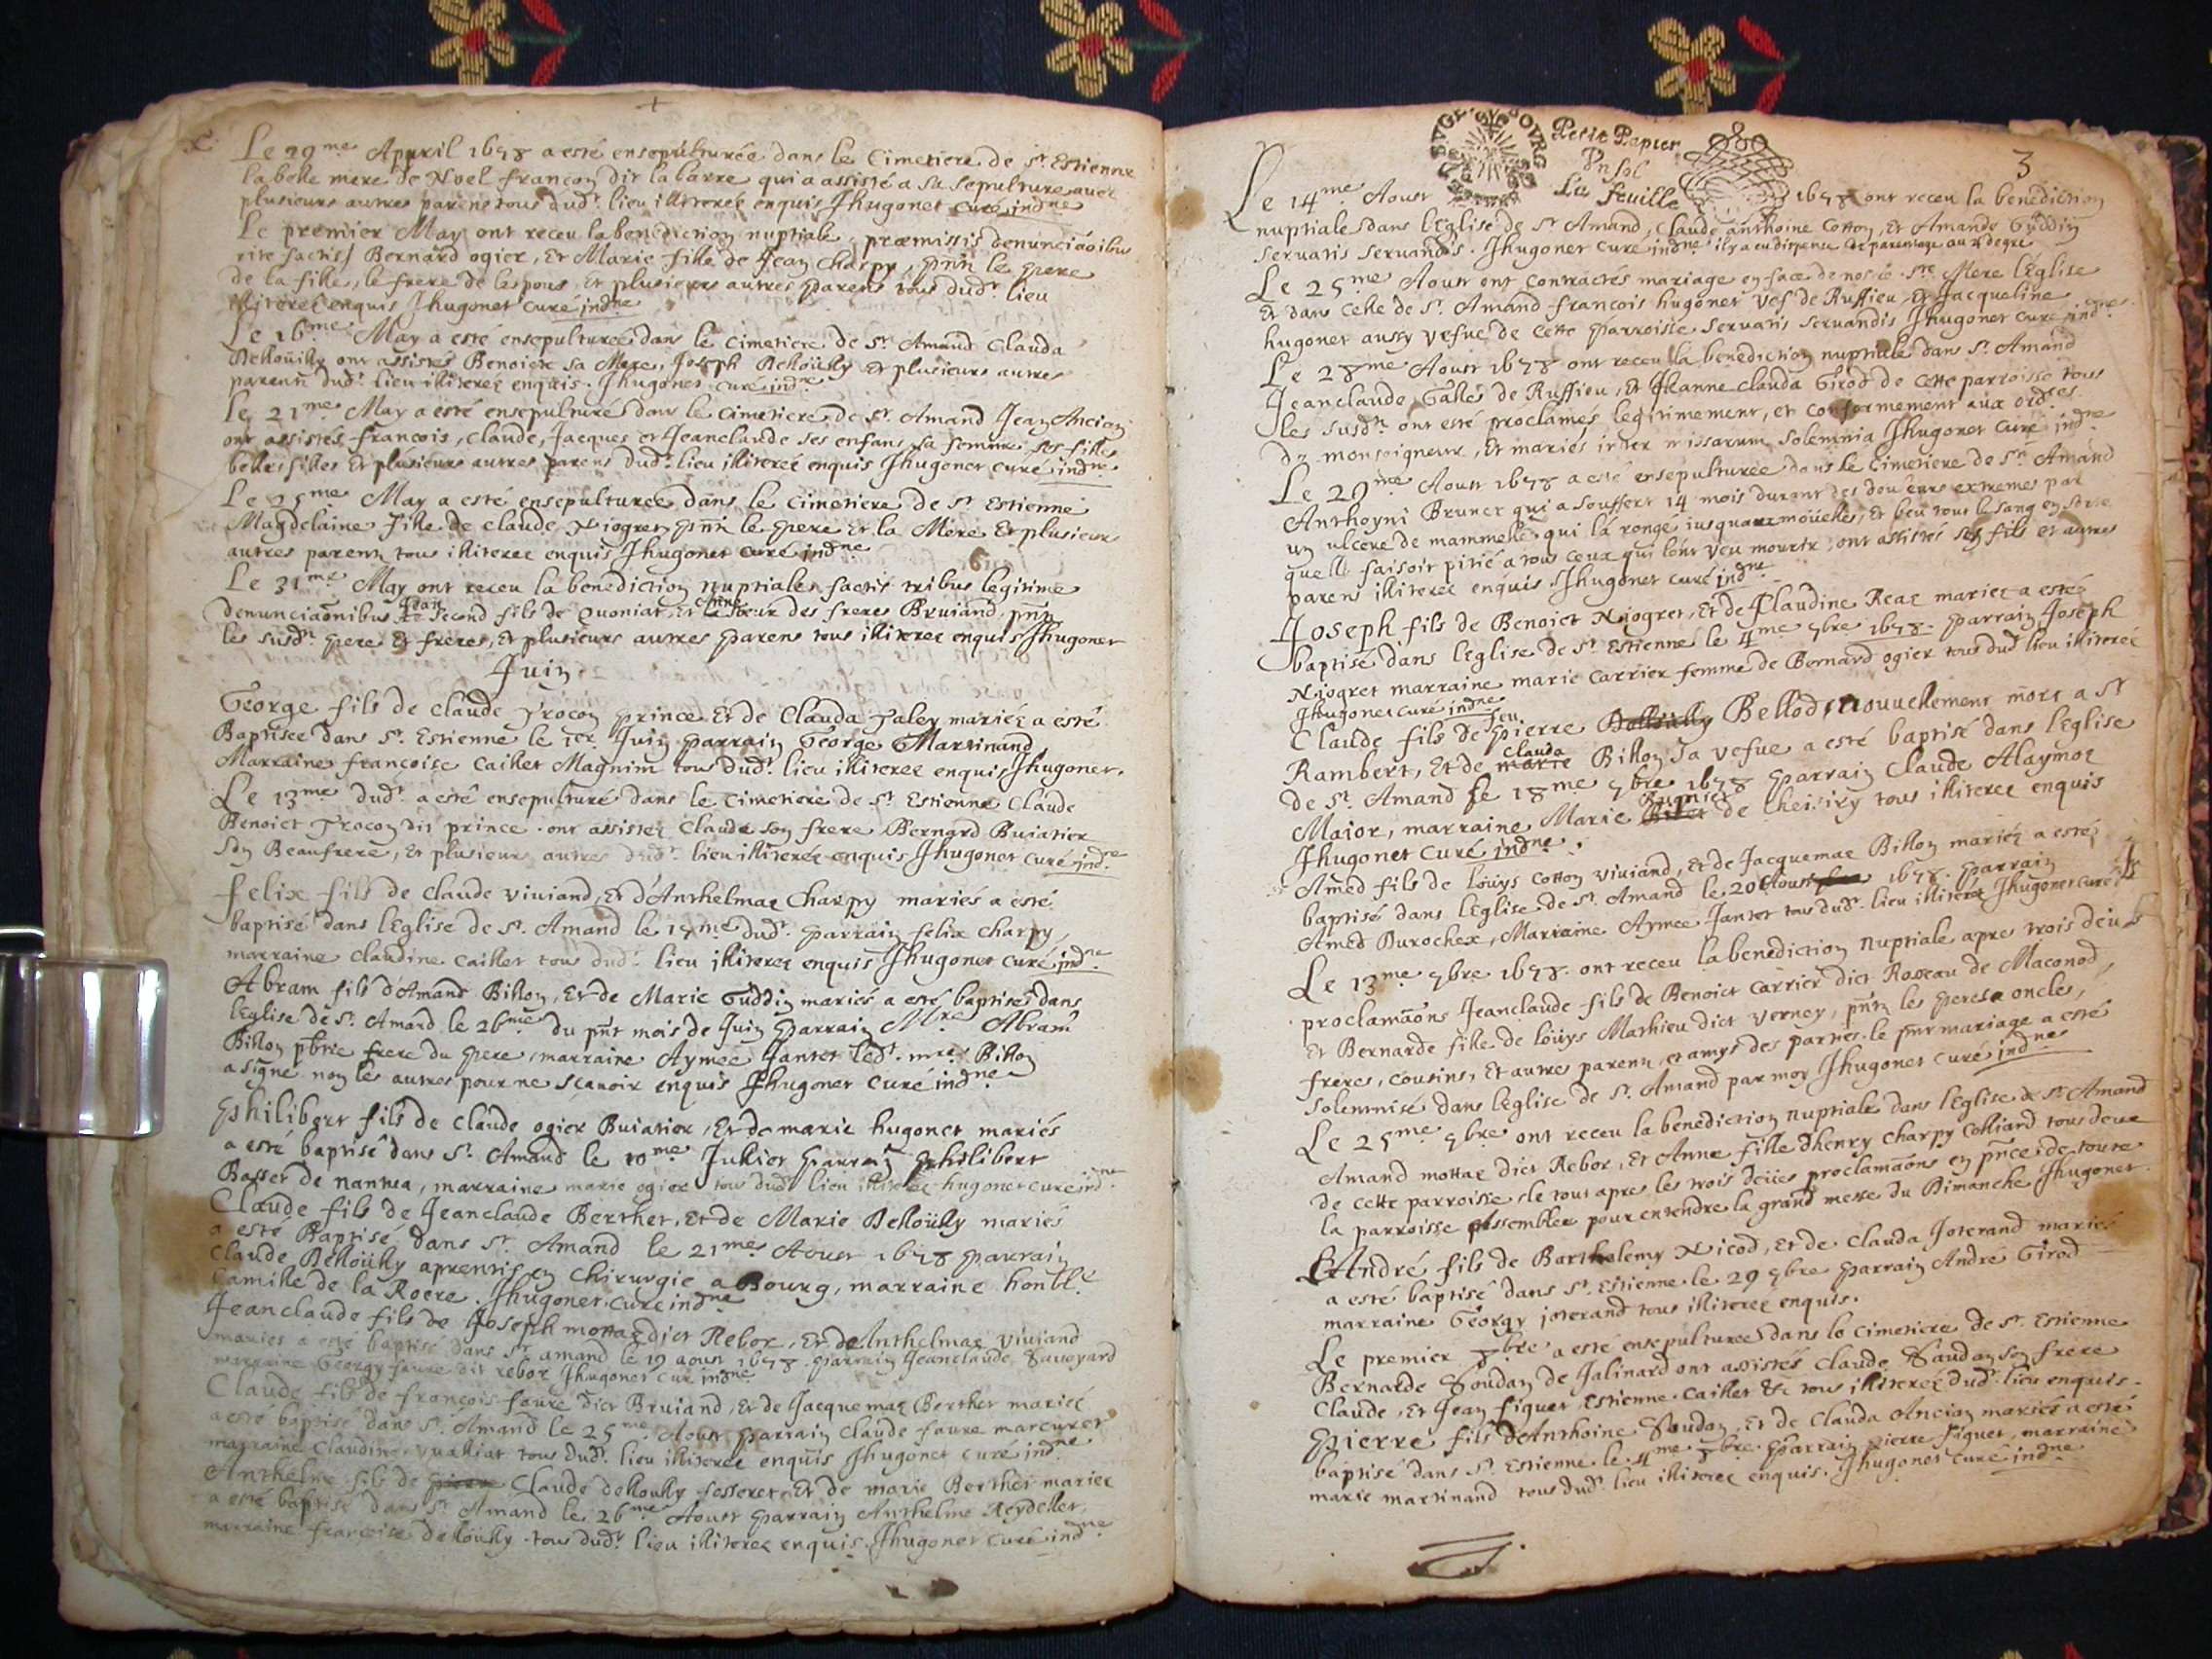 Le 29me Apuril 1678 a esté ensepulturée dans le Cimetiere de St Estienne
la belle mere de Noel françon dit la barre qui a assisté a sa sepulture auec
plusieurs autres parens tous dudt lieu illiterez enquis Jhugonet curé indne
Le premier May ont receu la benediction nuptiale, præmissis denunciãoibus
rite factis / Bernard ogier, Et Marie fille de Jean Charpy, pñtz le pere
de la fille, le frere de lespous, Et plusieurs autres parens tous dudt lieu
illiterez enquis Jhugonet curé indne
Le 16me May a esté ensepulturée dans le cimetiere de St Amand Clauda
Dekoüilly ont assistés Benoicte sa Mere, Joseph Dekoüilly Et plusieurs autres
parentz dudt lieu illiterez enquis. Jhugonet curé indne
le 21me May a esté ensepulturé dans le cimetiere de St Amand Jean Ancian
ont assistés francois, claude, Jacques et Jeanclaude ses enfans, sa femme ses filles
belles filles Et plusieurs autres parens dudt lieu illiterez enquis Jhugonet curé indne
Le 25me May a esté ensepulturée dans le cimetiere de St Estienne
Magdelaine fille de claude Niogret, pñtz le pere Et la Mere Et plusieurs
autres parentz tous illiterez enquis Jhugonet curé indne
Le 31me May ont receu la benediction nuptiale, factis tribus legitime
denunciãonibus Jean second fils de Quoniat, Et la soeur des freres Bruiand, pñtz
les susdt pere Et freres, Et plusieurs autres parens tous illiterez enquis Jhugonet
Juin
George fils de claude Procon prince Et de Clauda Paley mariéz a esté
Baptisée dans St Estienne le 1er Juin parrain George Martinand
Marraine francoise caillet Magnin tous dudt lieu illiterez enquis Jhugonet.
Le 13me dudt a esté ensepulturé dans le cimetiere de St Estienne Claude
Benoict Procon dit prince. ont assistez Claude son frere Bernard Buiatier
son Beaufrere, Et plusieurs autres dudt lieu illiterez enquis Jhugonet curé indne
felix fils de claude viuiand, Et d'Anthelmaz Charpy mariés a esté
baptisé dans lEglise de St Amand le 17me dudt. parrain felix charpy,
marraine claudine caillet tous dudt lieu illiterez enquis Jhugonet curé indne
Abram fils d'Amand Billon, Et de Marie Guddin mariés a esté baptisé dans
lEglise de St Amand le 26me du pñt mois de Juin parrain Mre Abram
Billon pbtre frere du pere, marraine Aymee Jantet ledt mre Billon
a signé non les autres pour ne sçauoir enquis Jhugonet curé indne
Philibert fils de claude ogier Buiatier, Et de marie hugonet mariés
a esté baptisé dans St Amand le 10me Juillet parrain philibert
Basset de nantua, marraine marie ogier tous dudt lieu illiterez hugonet curé indne
Claude fils de Jeanclaude Berthet, Et de Marie Dekoüilly mariés
a esté Baptisé dans St Amand le 21me Aoust 1678 parrain
Claude Dekoüilly aprentis en chirurgie a Bourg, marraine honble
Camille de la Roere. Jhugonet curé indne
Jeanclaude fils de Joseph mottaz dict Rebor, Et de Anthelmaz viuiand
mariés a esté baptisé dans St amand le 19 aoust 1678. parrain Jeanclaude Sauoyard
marraine Georgy faure dit rebor Jhugonet cur indne
Claude fils de françois faure dict Bruiand, Et de Jacquemaz Berthet mariéz
a esté baptisé dans St Amand le 25me Aoust parrain claude faure marcuret
marraine Claudine vualliat tous dudt lieu illiterez enquis Jhugonet curé indne
Anthelme fils de pierre Claude dekoully fesseret Et de marie Berthet mariéz
a esté baptisé dans St Amand le 26me Aoust parrain Anthelme Reydellet
marraine françoise dekoully tous dudt lieu illiterez enquis. Jhugonet curé indne
BVGE
BOVRG
Petit Papier
Vn sol
La feuille
3
Le 14me Aoust 1678 ont receu la benediction
nuptiale dans lEglise de St Amand, Claude anthoine Cotton, Et Amande Guddin
seruatis seruandis. Jhugonet curé indne il y a eu dispence de parentage au 4 degre
Le 25me Aoust ont contractés mariage en face de nostre Ste Mere lEglise
Et dans Celle de St Amand francois hugonet vef de Ruffieu, Et Jacqueline
hugonet aussy vefue de cette parroisse seruatis seruandis Jhugonet curé indne
Le 28me Aoust 1678 ont receu la benediction nuptiale dans St Amand
Jeanclaude Galles de Ruffieu, Et Jeanne clauda Girod de cette parroisse tous
les susdts ont esté proclamés legitimement, et conformement aux ordres
de monseigneur, Et mariés inter missarum solemnia Jhugonet curé indne
Le 29me Aoust 1678 a esté ensepulturée dans le cimetiere de St Amand
Anthoyni Brunet qui a souffert 14 mois durant des douleurs extremes par
un ulcere de mammelle qui la rongé iusquaux moüelles, Et beu tout le sang en sorte
quelle faisoit pitié a tous ceux qui lont veu mourir, ont assistés ses fils et autres
parens illiterez enquis Jhugonet curé indne
Joseph fils de Benoict Niogret, Et de Claudine Reaz mariez a esté
baptisé dans lEglise de St Estienne le 4me 7bre 1678. parrain Joseph
Niogret marraine marie carrier femme de Bernard ogier tous dud lieu illiteréz
Jhugonet curé indne
Claude fils de feu pierre Dekoüilly Bellod, nouuellement mort a St
Rambert, Et de marie Clauda Billon sa vefue a esté baptisé dans lEglise
de St Amand le 18me 7bre 1678 parrain Claude Alaymoz
Maior, marraine Marie de cheisiry tous illiterez enquis
Jhugonet curé indne.
Amed fils de loüys cotton viuiand, Et de Jacquemaz Billon mariéz a esté
baptisé dans lEglise de St Amand le 20 Aoust 1678. parrain
Amed Durochex, Marraine Aymee Jantet tous dudt lieu illiterez Jhugonet curé
Le 13me 9bre 1678. ont receu la benediction nuptiale apres trois deües
proclamãons Jeanclaude fils de Benoict carrier dict Rosseau de Maconod,
Et Bernarde fille de loüys Mathieu dict verney, pñtz les peres oncles,
freres, cousins, Et autres parentz, et amys des parties. le pñt mariage a esté
solemnisé dans lEglise de St Amand par moy Jhugonet curé indne
Le 25me 9bre ont receu la benediction nuptiale dans lEglise de St Amand
Amand mottaz dict Rebor, Et Anna fille dhenry charpy colliard tous deux
de cette parroisse, le tout apres les trois deües proclamãons en pñce de toute
la parroisse assemblee pour entendre la grand messe du Dimanche Jhugonet.
André fils de Barthelemy Nicod, Et de clauda Joterand mariés
a esté baptisé dans St Estienne le 29 9bre parrain André Girod
marraine Georgy joterand tous illiterez enquis.
Le premier Xbre a esté ensepulturée dans le cimetiere de St Estienne
Bernarde Soudan de Jalinard ont assistés claude Saudan son frere
Claude, Et Jean figuet, Estienne caillet Etc tous illiterez dudt lieu enquis.
Pierre fils dAnthoine Soudan, Et de clauda Ancian mariéz a esté
baptisé dans St Estienne le 4me Xbre parrain pierre figuet, marraine
marie martinand tous dudt lieu illiterez enquis. Jhugonet curé indne